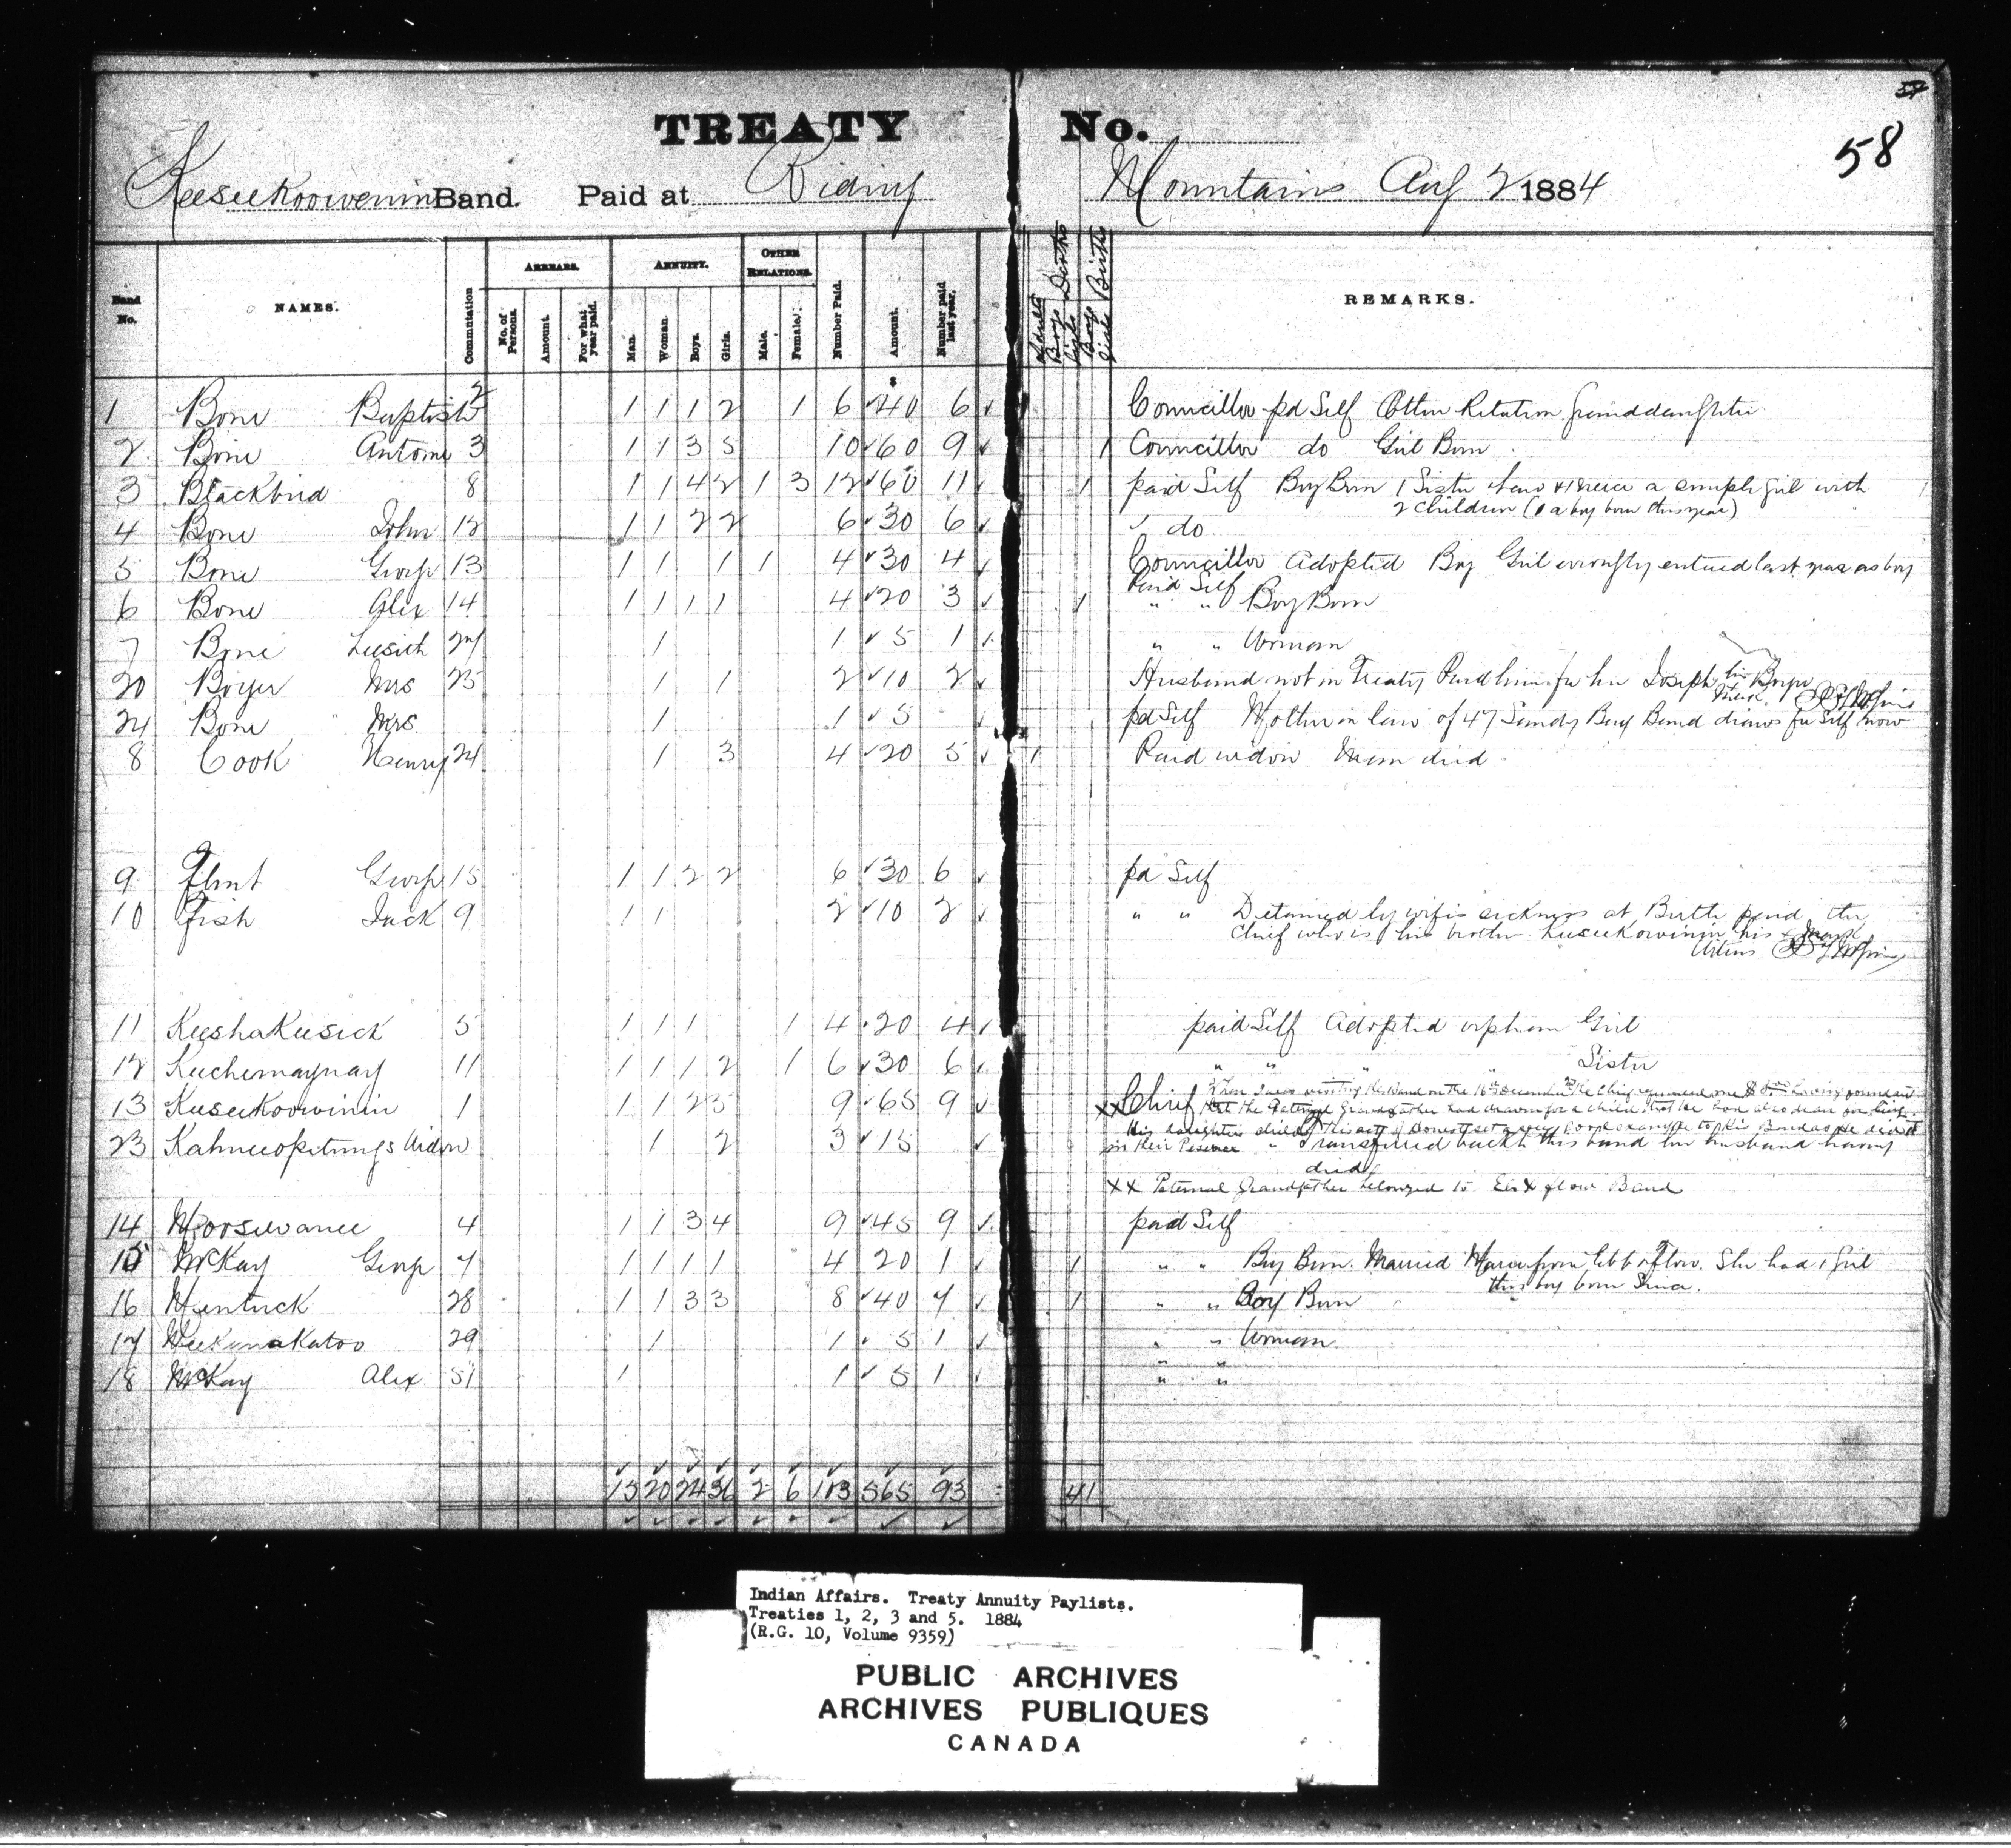 58
TREATY No.
Keeseekoowenin Band. Paid at Riding Mountains Aug 2 1884
Band No. NAMES. Commutation ARREARS. No. of Persons. Amount. For what year paid. ANNUITY. Man. Woman. Boys. Girls. OTHER RELATIONS. Male. Female. Number Paid. Amount. Number paid last year. Adults Boys Girls Deaths Boys Girls Births REMARKS.
$
1 Bone Baptiste 2 1 1 1 2 1 6 40 6 Councillor pd Self Other Relation Granddaughter
2 Bone Antoine 3 1 1 3 5 10 60 9 1 Councillor do Girl Born
3 Blackbird 8 1 1 4 2 1 3 12 60 11 1 paid Self Boy Born 1 Sister & 1 niece a simple girl with
2 children (a boy born this year)
4 Bone John 12 1 1 2 2 6 30 6 " do
5 Bone George 13 1 1 1 1 4 30 4 Councillor Adopted Boy Girl wrongly entered last year as boy
Paid Self
6 Bone Alex 14 1 1 1 1 4 20 3 1 " " Boy Born
7 Bone 24 1 1 5 1 " " Woman
20 Boyer Mrs 25 1 1 2 10 2 Husband not in Treaty Paid him for her Joseph his Boyer
mark
24 Bone Mrs 1 1 5 pd Self Mother in law of 47 Sandy Bay Band draws for Self now
8 Cook Henry 24 1 3 4 20 5 1 Paid widow Man died
9 Flint George 15 1 1 2 2 6 30 6 pd Self
10 Fish Jack 9 1 1 2 10 2 " " Detained by wife's sickness at Birtle paid the
Chief who is his brother Keeseekowinin his x mark
Witness
11 Keeshakeesick 5 1 1 1 1 4 20 4 paid Self Adopted orphan Girl
12 Keechemaynay 11 1 1 1 2 1 6 30 6 " " " Sister
13 Keeseekoowinin 1 1 1 2 5 9 65 9 xx Chief When I was visiting the Band on the 16th December the Chief returned me $5.00 having found out
that the Paternal Grandfather had drawn for a child that he had also drawn for being
his daughter's child This act of honesty set a very good example to his Band as he did it
in their Presence
23 Kahneeopetungs Widow 1 2 3 15 " Transferred back to this band her husband having
died
xx Paternal Grandfather belonged to Ebb & flow Band
14 Moosewanee 4 1 1 3 4 9 45 9 paid Self
15 McKay George 7 1 1 1 1 4 20 1 1 " " Boy Born. Married Maria from Ebb & Flow. She had 1 Girl
this boy born since.
16 Mentuck 28 1 1 3 3 8 40 7 1 " " Boy Born
17 29 1 1 5 1 " " Woman
18 McKay Alex 51 1 1 5 1 " "
15 20 24 36 2 6 103 565 93 4 1
Indian Affairs. Treaty Annuity Paylists.
Treaties 1, 2, 3 and 5. 1884
(R.G. 10, Volume 9359)
PUBLIC ARCHIVES
ARCHIVES PUBLIQUES
CANADA